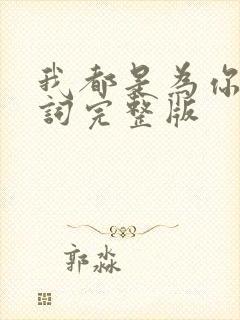 我都是為你
詞完整版
郭淼